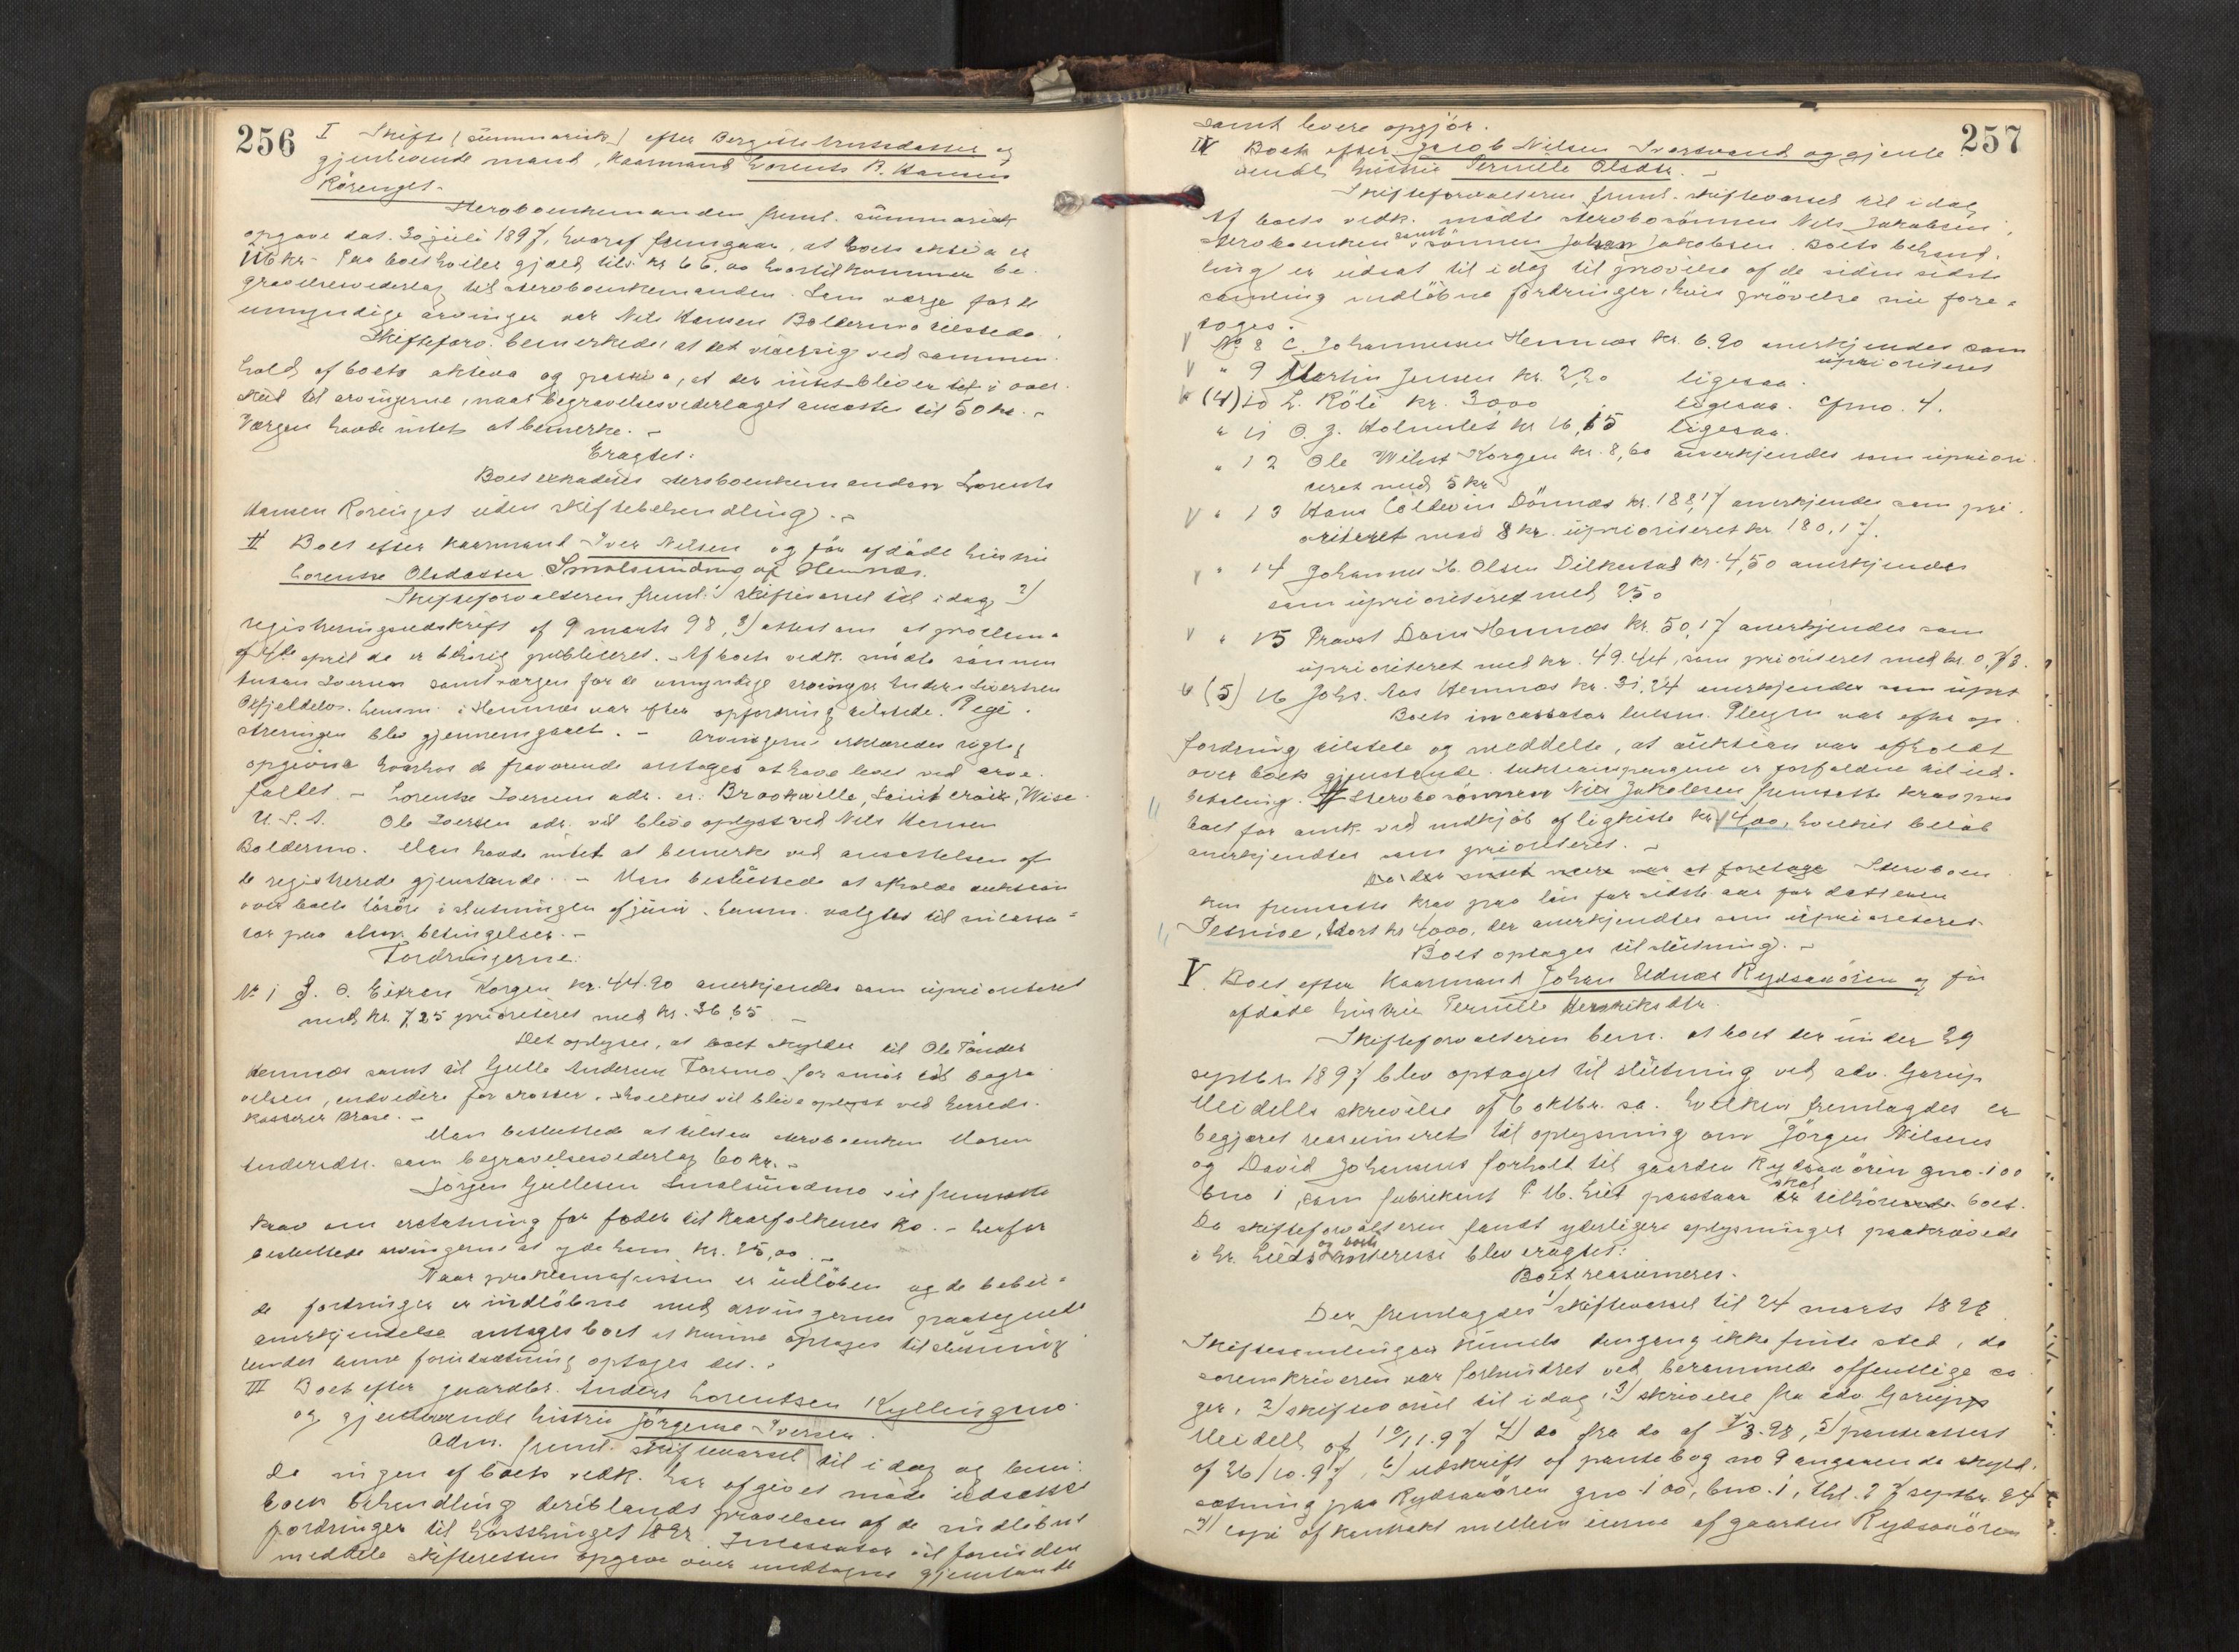 256
I Skifte (summarisk) efter Bergitte Knutsdatter og
gjenlevende mand, kaarmand Lorents B. Hansen
Rörenget.
Sterboenkemanden freml. summarisk
opgave dat. 30 juli 1897, hvoraf fremgaar, at boets aktiva er
116 kr. Paa boet hviler gjæld tils. kr 66,00 hvortil kommer be-
gravelsesvederlag til sterboenkemanden. Som værge for de
umyndige arvinger var Nils Hansen Boldermo tilstede.
Skifteforv. bemerkede, at det viser sig ved sammen-
hold af boets aktiva og passiva, at der intet bliver til i over-
skud til arvingerne, naar begravelsesvederlaget ansættes til 50 kr. -
Værgen havde intet at bemerke. -
Eragtet:
Boet extraderes sterboenkemanden Lorents
Hansen Rörenget uden skiftebehandling. -
II Boet efter kaarmand Iver Nilsen og för afdöde hustru
Lorentse Olsdatter Smalsundmo af Hemnæs.
Skifteforvalteren freml. 1) skiftevarsel til idag 2)
registreringsudskrift af 9 marts 98, 3) attest om at proclama
af 4de april do er behörig publiceret. - Af boets vedk. mödte sönnen
Johan Iversen samt værgen for de umyndige arvinger Anders Sivertsen
Oxfjeldet. Lensm. i Hemnæs var efter opfordring tilstede. Regi-
streringen blev gjennemgaaet. - Arvingerne erklæredes rigtig
opgivne hvorhos de fraværende antages at have levet ved arve-
faldet. - Lorentse Iversens adr. er: Brookville, Saint Croix, Wise.
U. S. A. Ole Iversen adr. vil blive oplyst ved Nils Hansen
Boldermo. Man havde intet at bemerke ved ansættelsen af
de registrerede gjenstande. - Man besluttede at afholde auktion
over boets lösöre i slutningen af juni. Lensm. valgtes til incassa-
tor paa alm. betingelser. -
Fordringerne:
No 1 J. O. Eitran Korgen kr. 44.90 anerkjendes som uprioriteret
med kr. 7,25 prioriteret med kr. 36,65 -
Det oplyses, at boet skylder til Ole Tönder
Hemnæs samt til Gulle Andersen Forsmo for smör til begra-
velsen, endvidere for , hvilket vil blive oplyst ved herreds-
kasserer Brose. -
Man besluttede at tilstaa sterboenken Maren
Andersdtr. som begravelsesvederlag 60 kr. -
Jörgen Gullesen Smalsundmo vil fremsætte
krav om erstatning for foder til kaarfolkenes ko. - herfor
besluttede arvingerne at yde ham kr. 25,00. -
Naar proklamafristen er udlöben og de bebu-
de fordringer er indlöbne med arvingernes paategnede
anerkjendelse antages boet at kunne optages til slutning
under denne forudsætning optages det. -
III Boet efter gaardbr. Anders Lorentsen Kyllingmo
og gjenlevende hustru Jörgine Iversen.
Adm. freml. skiftevarsel til i dag og bem:
Da ingen af boets vedk. har afgivet möde udsættes
boets behandling deriblandt prövelsen af de indlöbne
fordringer til hösttinget 1898. Incassator vil forinden
meddele skifteretten opgave over undtagne gjenstande
257
samt levere opgjör.
IV Boet efter Jacob Nilsen Svartvand og gjenle-
vende hustru Pernille Olsdtr. -
Skifteforvalteren freml. skiftevarsel til idag
Af boets vedk. mödte sterbosönnen Nils Jakobsen,
sterboenken samt sönnen Johan Jakobsen. Boets behand-
ling er udsat til idag til prövelse af de siden sidste
samling indlöbne fordringer, hvis prövelse nu fore-
toges.
V No 8 C. Johannesen Hemnæs kr. 6.90 anerkjendes som
uprioriteret
V " 9 Martin Jensen kr. 2,20 ligesaa.
(4) 10 L. Röli kr. 3000 ligesaa. cfr no. 4.
" 11 O. J. Holmslet kr 16,15 ligesaa.
" 12 Ole Korgen kr. 8,60 anerkjendes som upriori-
teret med 5 kr
V " 13 Hans Coldevin Dönnæs kr. 188,17 anerkjendes som pri-
oriteret med 8 kr. uprioriteret kr. 180,17.
V " 14 Johannes H. Olsen Dilkestad kr. 4,50 anerkjendes
som uprioriteret med 2,50
V " 15 Provst Hemnæs kr. 50,17 anerkjendes som
uprioriteret med kr. 49.44, som prioriteret med kr. 0,73.
(5) 16 Johs. Aas Hemnæs kr. 31,24 anerkjendes som uprt
Boets incassator lensm. Pleym var efter op-
fordring tilstede og meddelte, at auktion var afholdt
over boets gjenstande. Auktionspengene er forfaldne til ud-
betaling. Sterbosönnen Nils Jakobsen fremsatte krav paa
boet for omk. ved indkjöb af ligkiste kr 14,00, hvilket belöb
anerkjendtes som prioriteret. -
Da der intet mere var at foretage Sterboen-
ken fremsatte krav paa lön for sidste aar for datteren
Petrine, stort kr 40,00, der anerkjendtes som uprioriteret.
Boet optages til slutning. -
V. Boet efter kaarmand Johan Udnæs Rydsaaören og för
afdöde hustru Pernille Henriksdtr.
Skifteforvalteren bem. at boet der under 29
septbr. 1897 blev optaget til slutning ved adv. Garup
Meidells skrivelse af 6 oktbr. s.a. hvilken fremlagdes er
begjæret reasumeret til oplysning om Jörgen Nilsens
og David Johansens forhold til gaarden Rydsaaören gno. 100
bno 1, som fabrikant P. M. Lied paastaar skal tilhöre boet.
Da skifteforvalteren fandt yderligere oplysninger paakrævede
i hr. Lieds og boets interesse blev eragtet:
Boet reasumeres.
Der fremlagdes 1) skiftevarsel til 24 marts 1898
Skiftesamlingen kunde dengang ikke finde sted, da
sorenskriveren var forhindret ved berammede offentlige sa-
ger, 2) skiftevarsel til idag, 3) skrivelse fra adv. Garup
Meidell af 10/11.97 4) do fra do af 1/3.98, 5) panteattest
af 26/10.97, 6) udskrift af pantebog no 9 angaaende skyld-
sætning paa Rydsaaören gno. 100, bno. 1, thl. 27 septbr. 94
7) copi af kontrakt mellem eierne af gaarden Rydsaaören